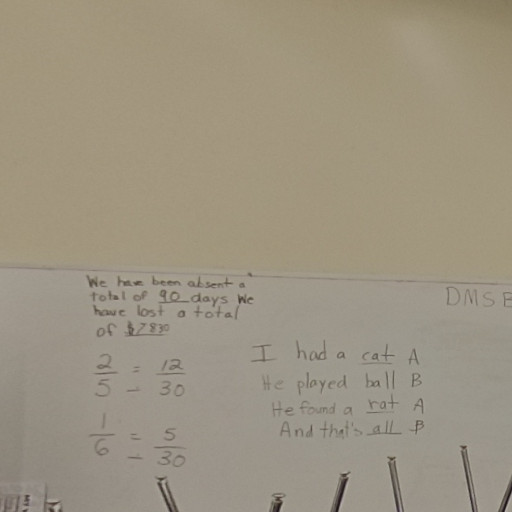 We have been absent a
total of 90 days We
have lost a total
of $7830
2/5 = 12/30
1/6 = 5/30
I had a cat A
He played ball B
He found a rat A
And that's all B
DMSB